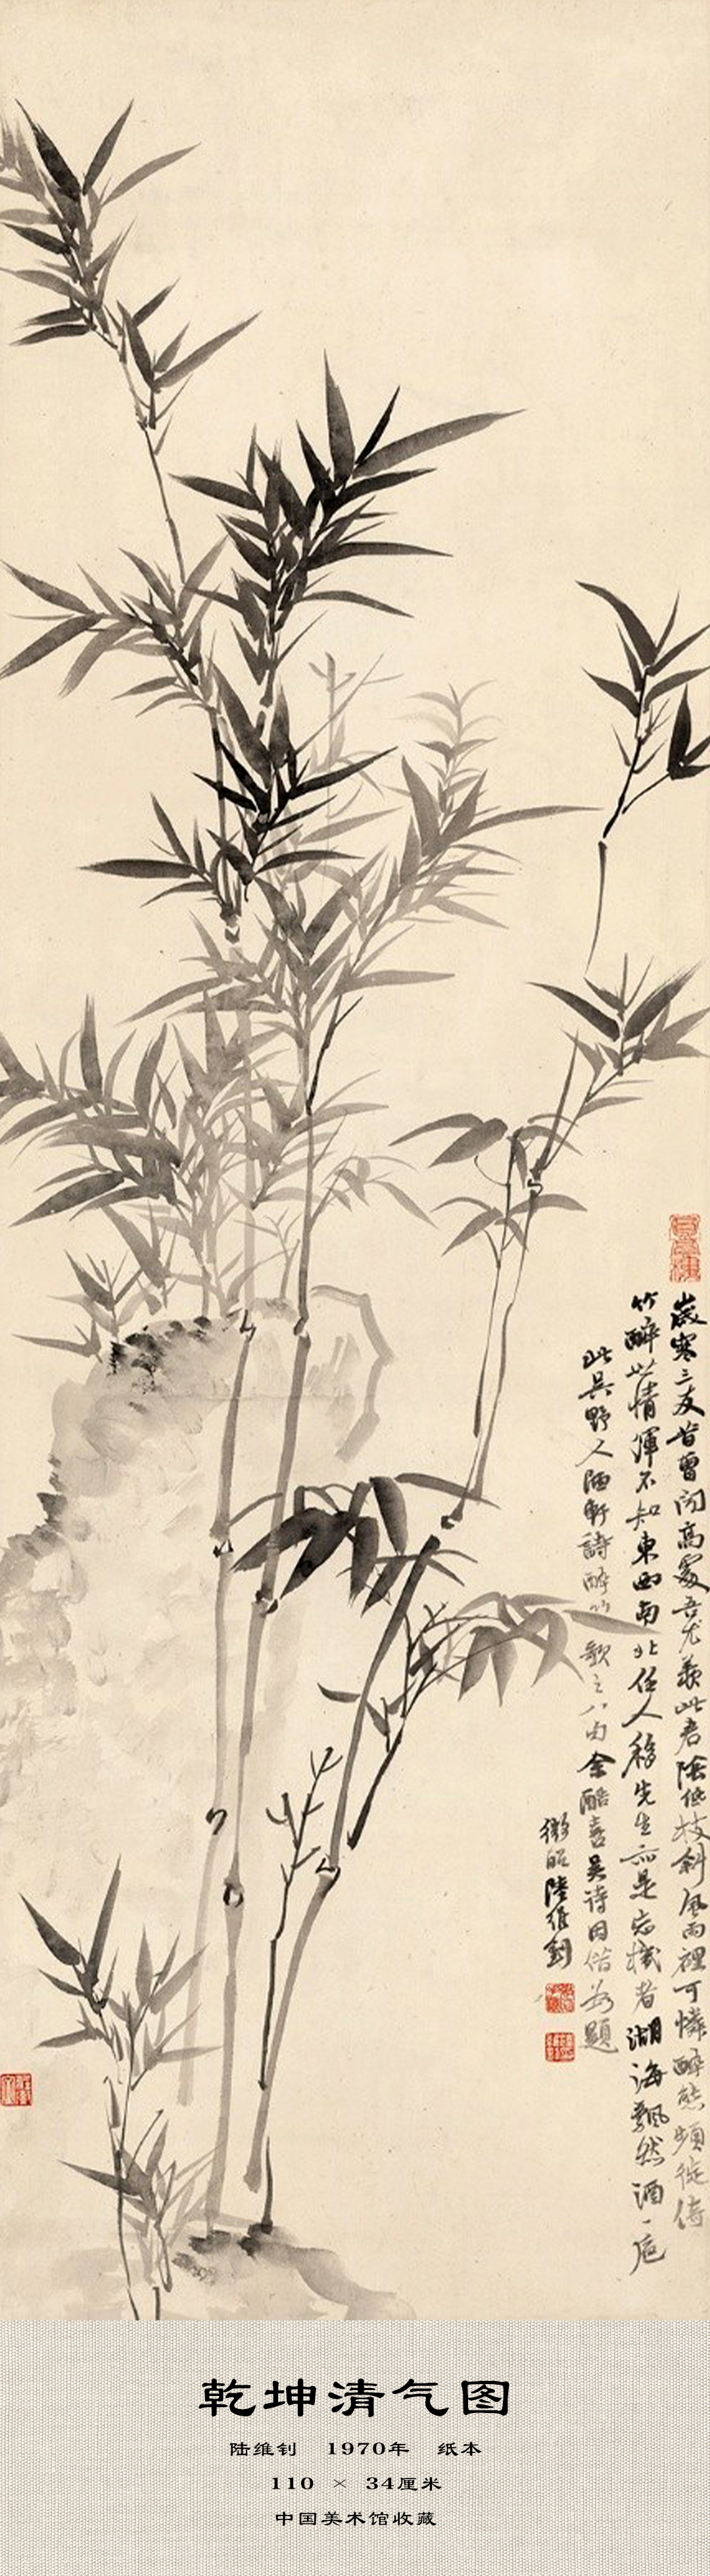 歲寒三友昔曾闻高處吾尤羨此君陰低枝斜風雨裡可憐醉態頻徙倚
竹醉此情渾不知東西南北任人移先生亦是忘機者湖海飄然酒一卮
此吳野人陋軒詩醉竹歌之八句余酷喜吳诗因借為題
微昭陸維釗
乾坤清气图
陆维钊 1970年 纸本
110 × 34厘米
中国美术馆收藏